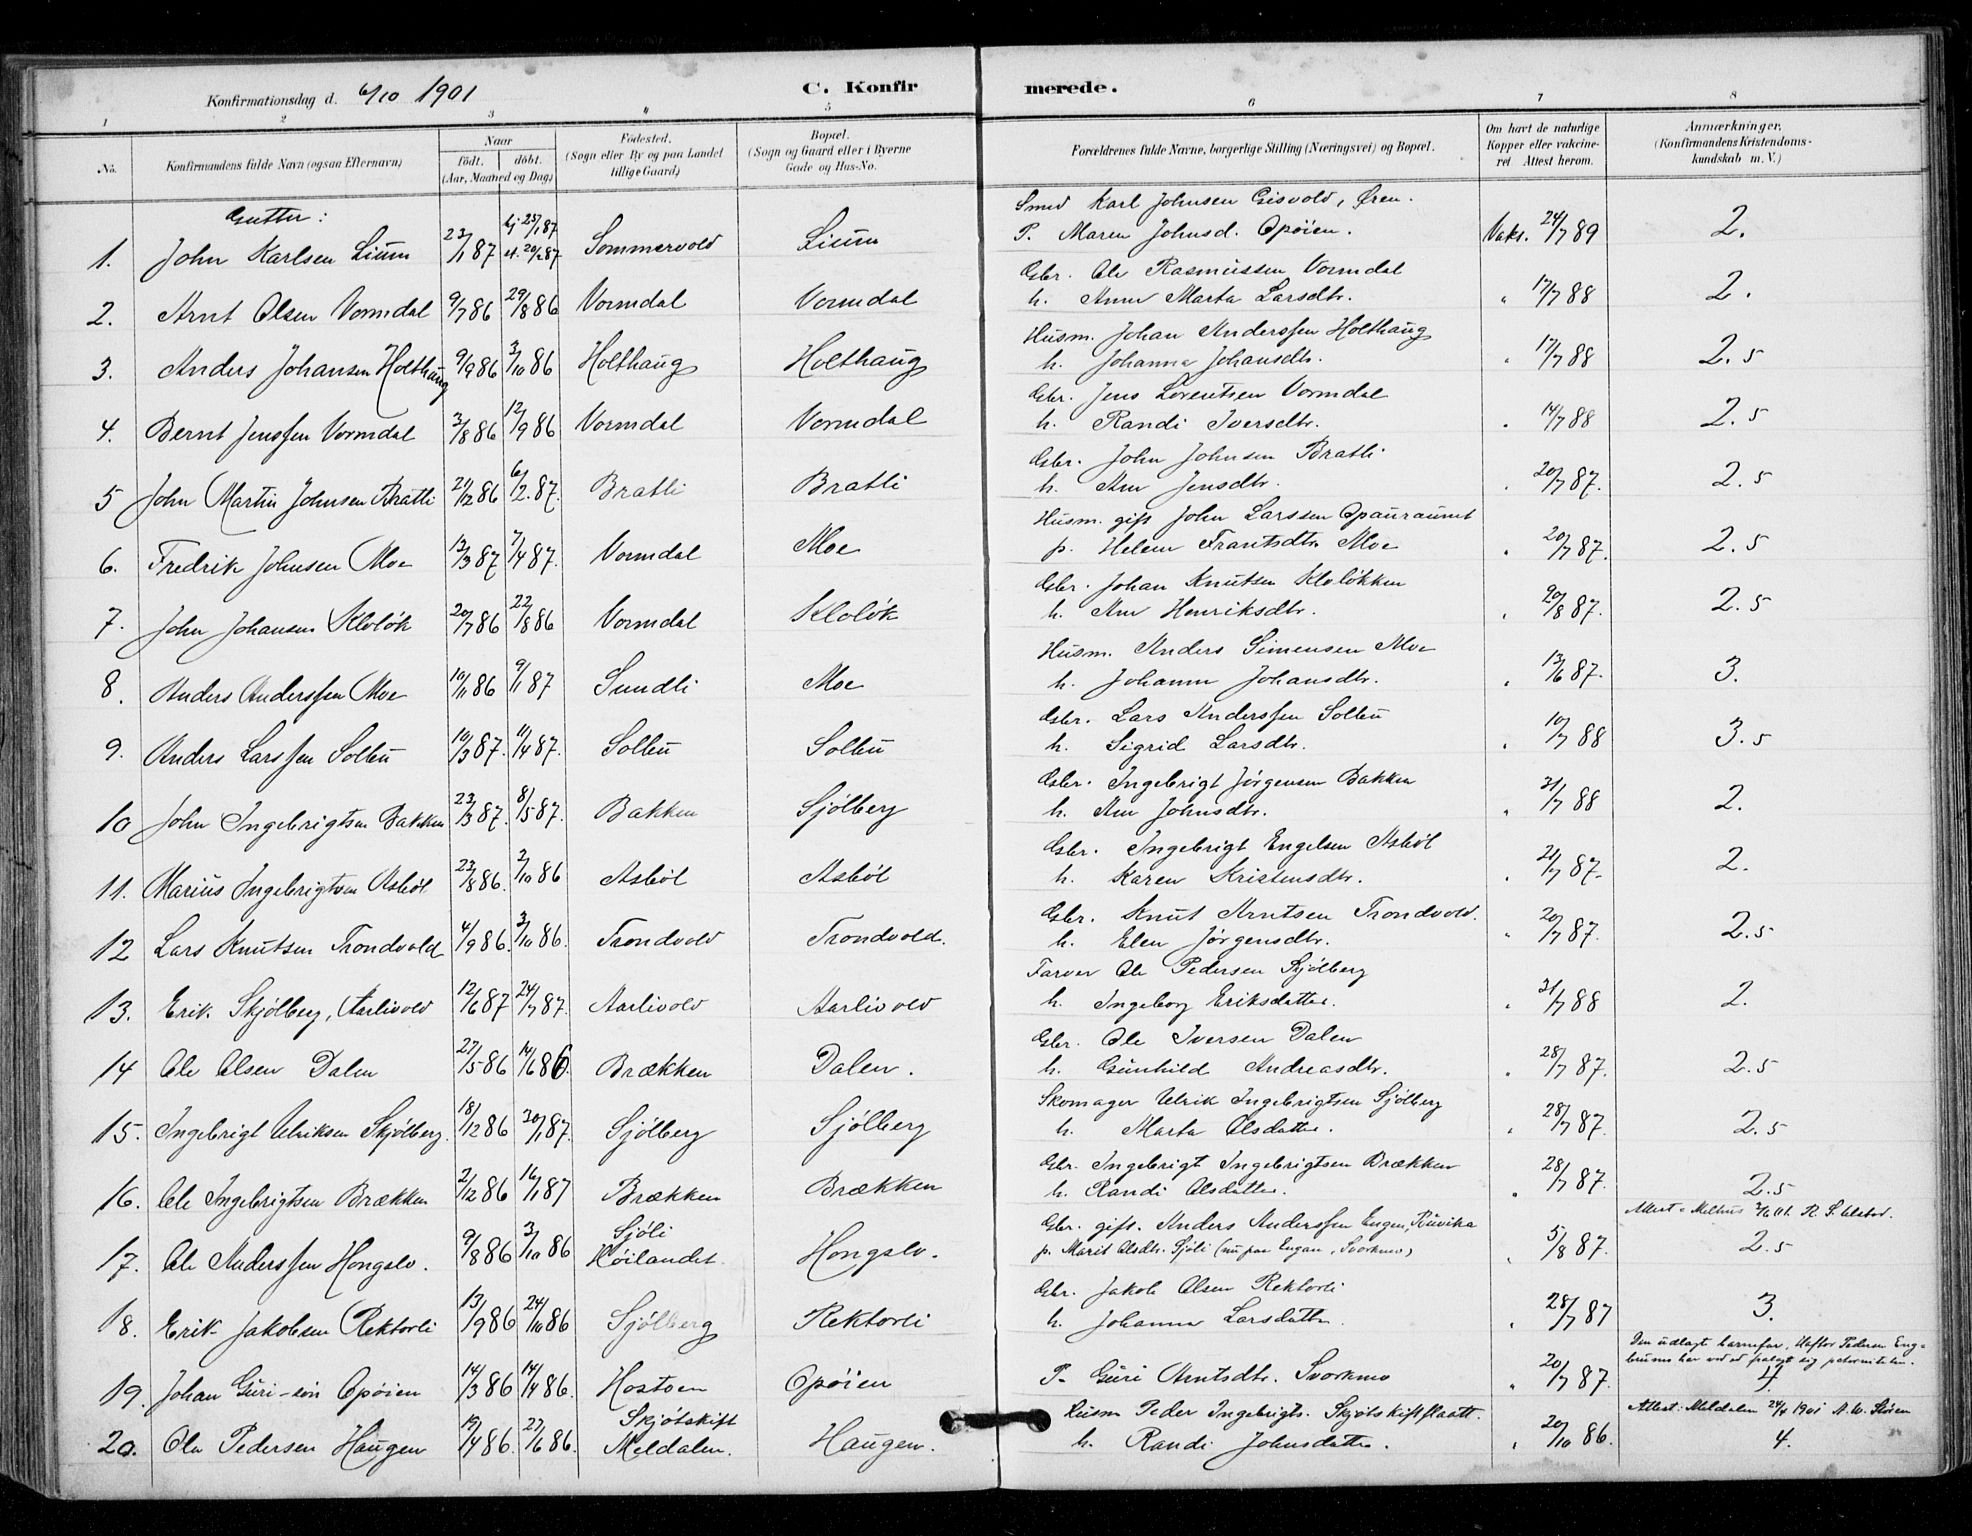 Konfirmationsdag d. 6/10 1901
C. Konfir
merede.
1 2 3 4 5 6 7 8
No. Konfirmandens fulde Navn (ogsaa Efternavn)
Naar
født. døbt.
(Aar, Maaned og Dag)
Fødested.
(Sogn eller By og paa Landet
tillige Gaard)
Bopæl.
(Sogn og Gaard eller i Byerne
Gade og Hus-No.
Forældrenes fulde Navne, borgerlige Stilling (Næringsvei) og Bopæl.
Om havt de naturlige
Kopper eller vakcine-
ret Attest herom.
Anmærkninger.
(Konfirmandens Kristendoms-
kundskab m. V.)
Gutter:
Smed Karl Johnsen Gisvold, Øren.
1. John Karlsen Lium 23/1 87 hj 23/1 87 Sommervold Lium P. Maren Johnsd. Opøien. Vaks. 24/7 89 2.
20/2 87
Gbr. Ole Rasmussen Vormdal
2. Arnt Olsen Vormdal 9/7 86 29/8 86 Vormdal Vormdal h. Anne Marta Larsdtr. " 17/7 88 2.
Husm. Johan Anderssen Holthaug
3. Anders Johansen Holthaug 9/9 86 3/10 86 Holthaug Holthaug h. Johanna Johansdtr. " 17/7 88 2.5
Gbr. Jens Lorentsen Vormdal
4. Bernt Jenssen Vormdal 3/8 86 12/9 86 Vormdal Vormdal h. Randi Iversdtr. " 14/7 88 2.5
Gbr. John Johnsen Bratli
5 John Martin Johnsen Bratli 21/12 86 6/2 87. Bratli Bratli h. Ane Jensdtr. " 20/7 87. 2.5
Husm. gift John Larssen Opauraunet
6. Fredrik Johnsen Moe 13/3 87 7/4 87. Vormdal Moe p. Helene Frantsdtr. Moe " 20/7 87. 2.5
Gbr. Johan Knutsen Kleløkken
7. John Johansen Kleløk 20/7 86 22/8 86 Vormdal Kleløk h. Ane Henriksdtr. " 20/8 87. 2.5
Husm. Anders Simensen Moe
8. Anders Anderssen Moe 10/11 86 9/1 87 Sundli Moe h. Johanne Johansdtr. " 13/6 87. 3.
Gbr. Lars Anderssen Solbu
9. Anders Larssen Solbu 10/3 87. 11/4 87. Solbu Solbu h. Sigrid Larsdtr. " 10/7 88 3.5
Gbr. Ingebrigt Jørgensen Bakken
10 John Ingebrigtsen Bakken 23/3 87. 8/5 87. Bakken Sjølberg h. Ane Johnsdtr. " 31/7 88 2.
Gbr. Ingebrigt Engelsen Asbøl
11. Marius Ingebrigtsen Asbøl 23/8 86. 3/10 86 Asbøl Asbøl h. Karen Kristensdtr. " 21/7 87. 2.
Gbr. Knut Arntsen Trondvold.
12 Lars Knutsen Trondvold 4/9 86. 3/10 86. Trondvold Trondvold. h. Elen Jørgensdtr. " 20/7 87. 2.5
Farver Ole Pedersen Sjølberg
13. Erik Skjølberg, Aarlivold 12/6 87 24/7 87. Aarlivold Aarlivold h. Ingeborg Eriksdatter. " 31/7 88 2.
Gbr. Ole Iversen Dalen
14 Ole Olsen Dalen 27/5 86 14/6 86. Brækken Dalen. h. Gunhild Andreasdtr. " 28/7 87. 2.5
Skomager Ulrik Ingebrigtsen Sjølberg
15. Ingebrigt Ulriksen Skjølberg. 18/12 86 30/1 87. Sjølberg Sjølberg h. Marta Olsdatter. " 28/7 87. 2.5
Gbr. Ingebrigt Ingebrigtsen Brækken
16. Ole Ingebrigtsen Brækken 2/12 86 16/1 87 Brækken Brækken h. Randi Olsdatter. " 28/7 87. 2.5
Gbr. gift. Anders Anderssen Engen, Buvika
17. Ole Anderssen Hongslo. 9/8 86 3/10 86 Sjøli Høilandet. Hongslo. p. Marit Olsdtr. Sjøli (nu paa Engan, Svorkmo) " 5/8 87. 2.5
Gbr. Jakob Olsen Rektorli
18. Erik Jakobsen Rektorli 13/9 86 24/10 86 Sjølberg Rektorli h. Johanna Larsdatter " 28/7 87 3.
19. Johan Guri-søn Opøien 14/3 86 14/4 86. Hostoen Opøien P. Guri Arntsdtr. Svorkmo " 20/7 87. 4.
Husm Peder Ingebrigts. Skjøtskiftplaatt.
Attest: Meldalen 24/4 1901
20. Ole Pedersen Haugen 19/4 86. 27/6 86. Skjøtskift Meldalen. Haugen. h. Randi Johnsdatter. " 20/10 86. 4.